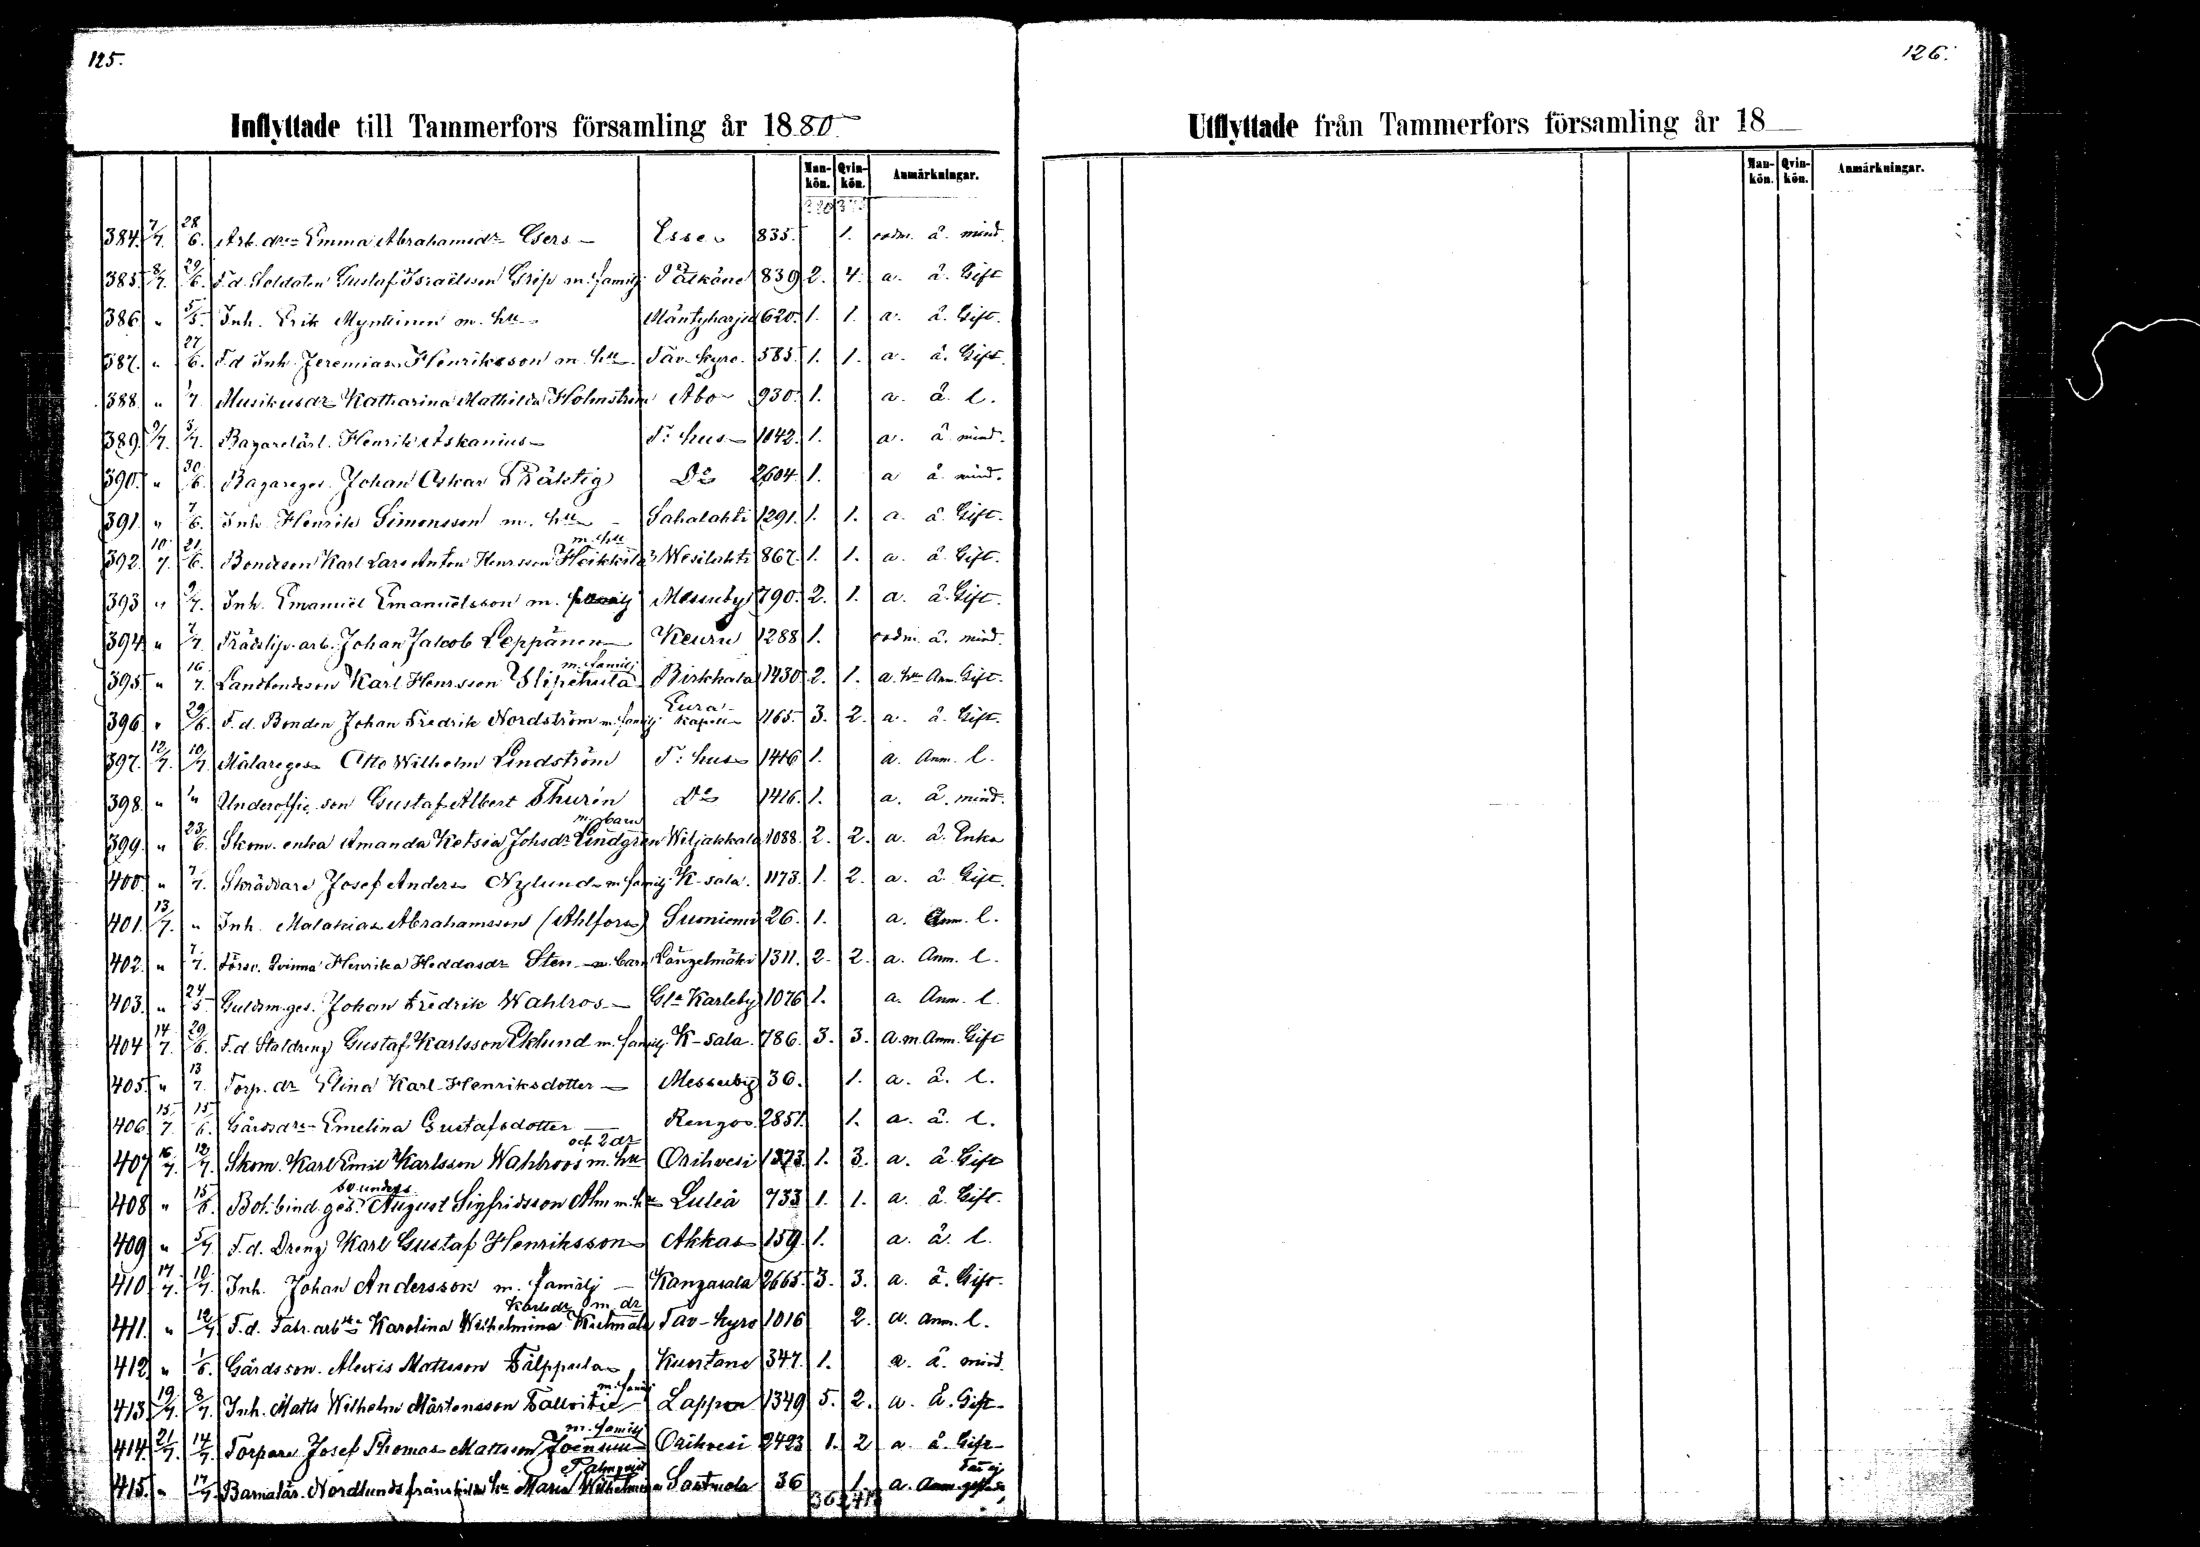 125.
Inflyttade till Tammerfors församling år 1880
Man-kön. Qvin-kön. Anmärkningar.
384. 7/7 28/6. Arb. dr Emma Abrahamsdr Esse 835. 1. å. mind.
385. 8/7. 29/6. F.d. Soldaten Gustaf Israelsson Grip m. familj Pälkäne 839 2. 4. a. å. Gift
386 " 5/5. Inh. Erik Myntinen m. hu Mäntyharju 620. 1. 1. a. å. Gift.
387. " 27/6. F.d Inh. Jeremias Henriksson m. hu Tav-kyro. 585. 1. 1. a. å. Gift.
388. " 1/7. Musikusdr Katharina Mathilda Holmström Åbo 930. 1. a. å. l.
389. 9/7. 3/7. Bagarelärl. Henrik Askanius T: hus 1042. 1. a. å mind.
390. " 30/6. Bagareges. Johan Oskar Präktig Do 2604. 1. a å mind.
391. " 7/6. Inh. Henrik Simonsson m. hu Sahalahti 1291. 1. 1. a. å Gift.
m. hu
392. 10/7. 21/6. Bondeson Karl Lars Anton Henrsson Heikkilä Wesilahti 867. 1. 1. a. å. Gift.
393 " 9/7. Inh. Emanuel Emanuelsson m. familj Messuby 790. 2. 1. a. å. Gift.
394. " 7/7. Trädslip. arb. Johan Jakob Leppänen Keuru 1288 1. å. mind.
m. familj
395. " 16/7. Landbondeson Karl Henrsson Ylipehula Birkkala 1430. 2. 1. a. hu Anm. Gift.
396 " 29/6. F. d. Bonden Johan Fredrik Nordström m. familj Eura-kapell 1165. 3. 2. a. å. Gift.
397. 12/7. 10/7. Målareges Otto Wilhelm Lindström T: hus 1416 1. a. Anm. l.
398. " " Underoffic. son Gustaf Albert Thurén Do 1416. 1. a. å. mind.
m. barn
399. " 23/6. Skom. enka Amanda Ketsia Johsdr Lindgren Wiljakkala 1088. 2. 2. a. å. Enka
400. " 7/7. Skräddare Josef Anders Nylund m familj K-sala. 1173. 1. 2. a. å. Gift.
401. 13/7. " Inh. Malakias Abrahamsson (Ahlfors) Suoniemi 26. 1. a. Anm. l.
402. " 7/7. Försv. Qvinna Henrika Heddasdr Sten m. barn Längelmäki 1311. 2. 2. a. Anm. l.
403. " 24/5 Guldsm. ges. Johan Fredrik Wahlros Gla Karleby 1076 1. a. Anm. l.
404 14/7. 29/6. F.d Staldreng Gustaf Karlsson Eklund m. familj K-sala. 786. 3. 3. a.m. Anm. Gift
405. " 13/7. Torp. dr Elina Karl-Henriksdotter Messuby 36. 1. a. å. l.
406. 15/7. 15/6. Gårdsdr Emelina Gustafsdotter Rengo 2851. 1. a. å. l.
och 2 dr
407 16/7. 12/7. Skom. Karl Emil Karlsson Wahlroos m. hu Orihvesi 1373. 1. 3. a. å. Gift
408 " 15/6. Bok. bind. ges. August Sigfridsson Alm m. hu Luleå 733 1. 1. a. å. Gift.
409 " 5/7. F. d. Dreng Karl Gustaf Henriksson Akkas 159. 1. a. å. l.
410 17/7. 10/7. Inh. Johan Andersson m. familj Kangasala 2665. 3. 3. a. å. Gift.
Karlsdr m. dr
411. " 12/7 F.d. Fabr. arb Karolina Wilhelmina Tav-kyro 1016 2. a. Anm. l.
412. " 1/6. Gårdsson. Alexis Mattsson Tälppula Kuortane 347. 1. a. å. mind.
m. familj
413. 19/7. 8/7. Inh. Matts Wilhelm Mårtensson Lappo 1349 5. 2. a. å. Gift
m. familj
414. 21/7. 14/7. Torpare Josef Thomas Mattsson Joensuu Orihvesi 2423 1. 2 a. å. Gift
Palmqvist
415. " 17/7. Nordlunds frånskilda hu Maria Wilhelmina Sastmola 36 1. a. Anm.
126.
Utflyttade från Tammerfors församling år 18
Man-kön. Qvin-kön. Anmärkningar.